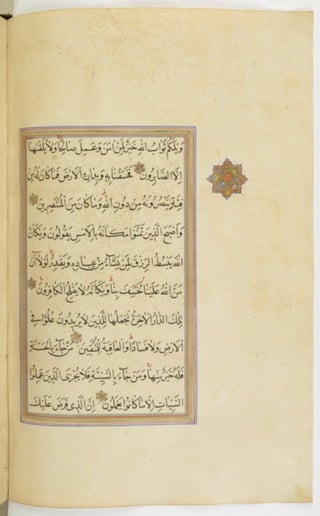 وَيْلَكُمْ ثَوَابُ اللهِ خَيْرٌ لِمَنْ آمَنَ وَعَمِلَ صَالِحًا وَلَا يُلَقَّاهَا
اِلَّا الصَّابِرُونَ فَخَسَفْنَا بِهِ وَبِدَارِهِ الْاَرْضَ فَمَا كَانَ لَهُ مِنْ
فِئَةٍ يَنْصُرُونَهُ مِنْ دُونِ اللهِ وَمَا كَانَ مِنَ الْمُنْتَصِرِينَ
وَاَصْبَحَ الَّذِينَ تَمَنَّوْا مَكَانَهُ بِالْاَمْسِ يَقُولُونَ وَيْكَاَنَّ
اللهَ يَبْسُطُ الرِّزْقَ لِمَنْ يَشَآءُ مِنْ عِبَادِهِ وَيَقْدِرُ لَوْلَا اَنْ
مَنَّ اللهُ عَلَيْنَا لَخَسَفَ بِنَا وَيْكَاَنَّهُ لَا يُفْلِحُ الْكَافِرُونَ
تِلْكَ الدَّارُ الْاٰخِرَةُ نَجْعَلُهَا لِلَّذِينَ لَا يُرِيدُونَ عُلُوًّا فِي
الْاَرْضِ وَلَا فَسَادًا وَالْعَاقِبَةُ لِلْمُتَّقِينَ مَنْ جَآءَ بِالْحَسَنَةِ
فَلَهُ خَيْرٌ مِنْهَا وَمَنْ جَآءَ بِالسَّيِّئَةِ فَلَا يُجْزَى الَّذِينَ عَمِلُوا
السَّيِّئَاتِ اِلَّا مَا كَانُوا يَعْمَلُونَ اِنَّ الَّذِي فَرَضَ عَلَيْكَ